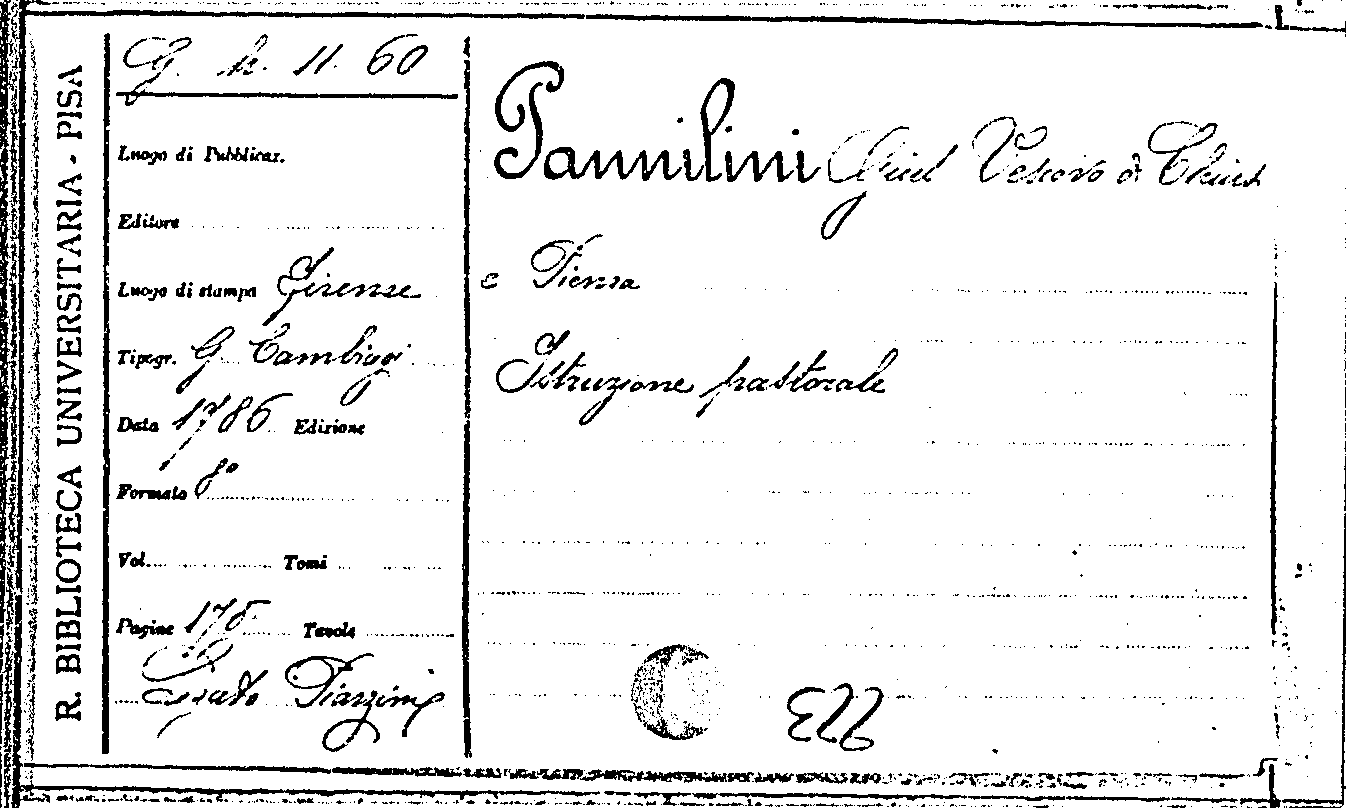 R. BIBLIOTECA UNIVERSITARIA - PISA
G. h. 11. 60
Luogo di Pubblicaz.
Editore
Luogo di stampa Firenze
Tipogr. G Cambiagi
Data 1786 Edizione
Formato 8º
Vol. Tomi
Pagine Tavole
Pannilini Giud Vescovo di Chiusi
e Pienza
Istruzione pastorale